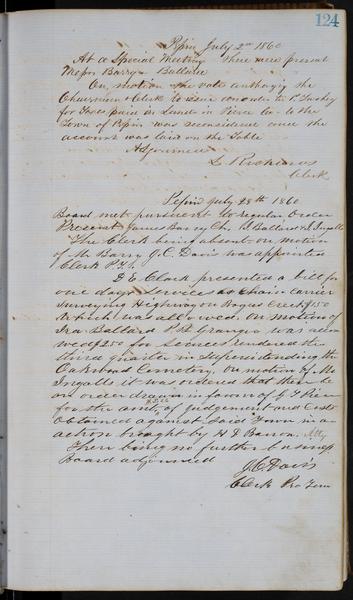 124
Pepin July 2nd 1860
At a Special Meeting There were present
Messrs Barry & Ballard
On motion the vote authorizing the
Chairman & Clerk to issue
for Taxes paid on Lands in Pierce Co. to the
Town of Pepin was reconsidered and the
account was laid on the Table
Adjourned
Clerk
Pepin July 28th 1860
Board met pursuant to regular order
Present James Barry Ch. I Ballard & Ingalls
The Clerk being absent on motion
of Mr Barry J. C. Davis was appointed
Clerk P. T.
D E Clark presented a bill for
one days services as Chain Carrier
Surveying Highway on Bogus Creek $1.50
Which was allowed. On motion of
Ira Ballard P. H. Granger was
$2.50 for Services rendered the
third quarter in Superintending the
Oakwood Cemetery, On motion of Mr
Ingalls it was ordered that there be
an order drawn in favor of J. T.
for the amt, of judgement and Costs
obtained against said Town in an
action brought by H D Barron. Atty
There being no further business
Board adjourned
J. C. Davis
Clerk Pro Tem